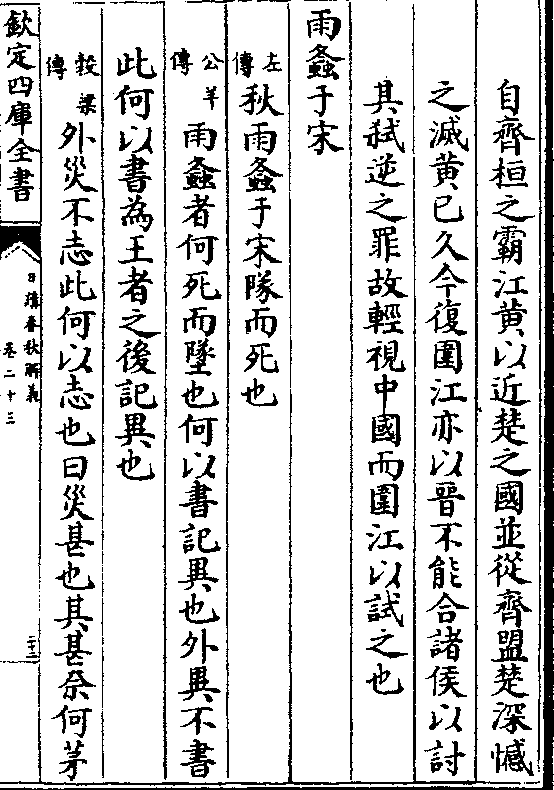 自齊桓之霸江黄以近楚之國並從齊盟楚深憾
之滅黄已久今復圍江亦以晉不能合諸侯以討
其弑逆之罪故輕視中國而圍江以試之也
雨螽于宋
左傳秋雨螽于宋隊而死也
公羊傳雨螽者何死而墜也何以書記異也外異不書
此何以書為王者之後記異也
穀梁傳外災不志此何以志也曰災甚也其甚奈何茅
欽定四庫全書
日講春秋解義
卷二十三
二十二